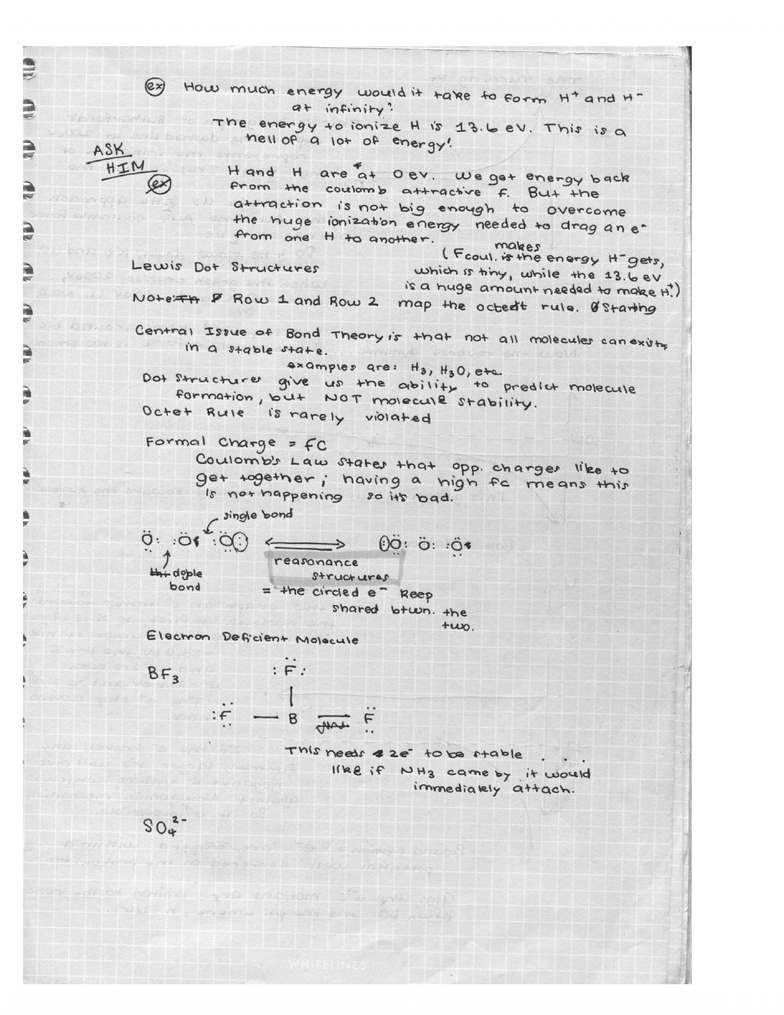 ex How much energy would it take to form H⁺ and H⁻
at infinity?
The energy to ionize H is 13.6 eV. This is a
hell of a lot of energy!
ASK
HIM
ex H and H are at 0 eV. We get energy back
from the coulomb attractive f. But the
attraction is not big enough to overcome
the huge ionization energy needed to drag an e⁻
from one H to another.
makes
(Fcoul. is the energy H⁻ gets,
Lewis Dot Structures
which is tiny, while the 13.6 eV
is a huge amount needed to make H⁺)
Note: Row 1 and Row 2 map the octet rule. Starting
Central Issue of Bond Theory is that not all molecules can exist,
in a stable state.
examples are: H₃, H₃O, etc.
Dot Structures give us the ability to predict molecule
formation, but NOT molecule stability.
Octet Rule is rarely violated
Formal Charge = FC
Coulomb's Law states that opp. charges like to
get together; having a high fc means this
is not happening so it's bad.
single bond
O O O O O O
doble
bond
reasonance
structures
= the circled e⁻ keep
shared btwn. the
two.
Electron Deficient Molecule
BF₃
F
F B F
This needs 2e⁻ to be stable . . .
like if NH₃ came by it would
immediately attach.
SO₄²⁻
WHITELINES